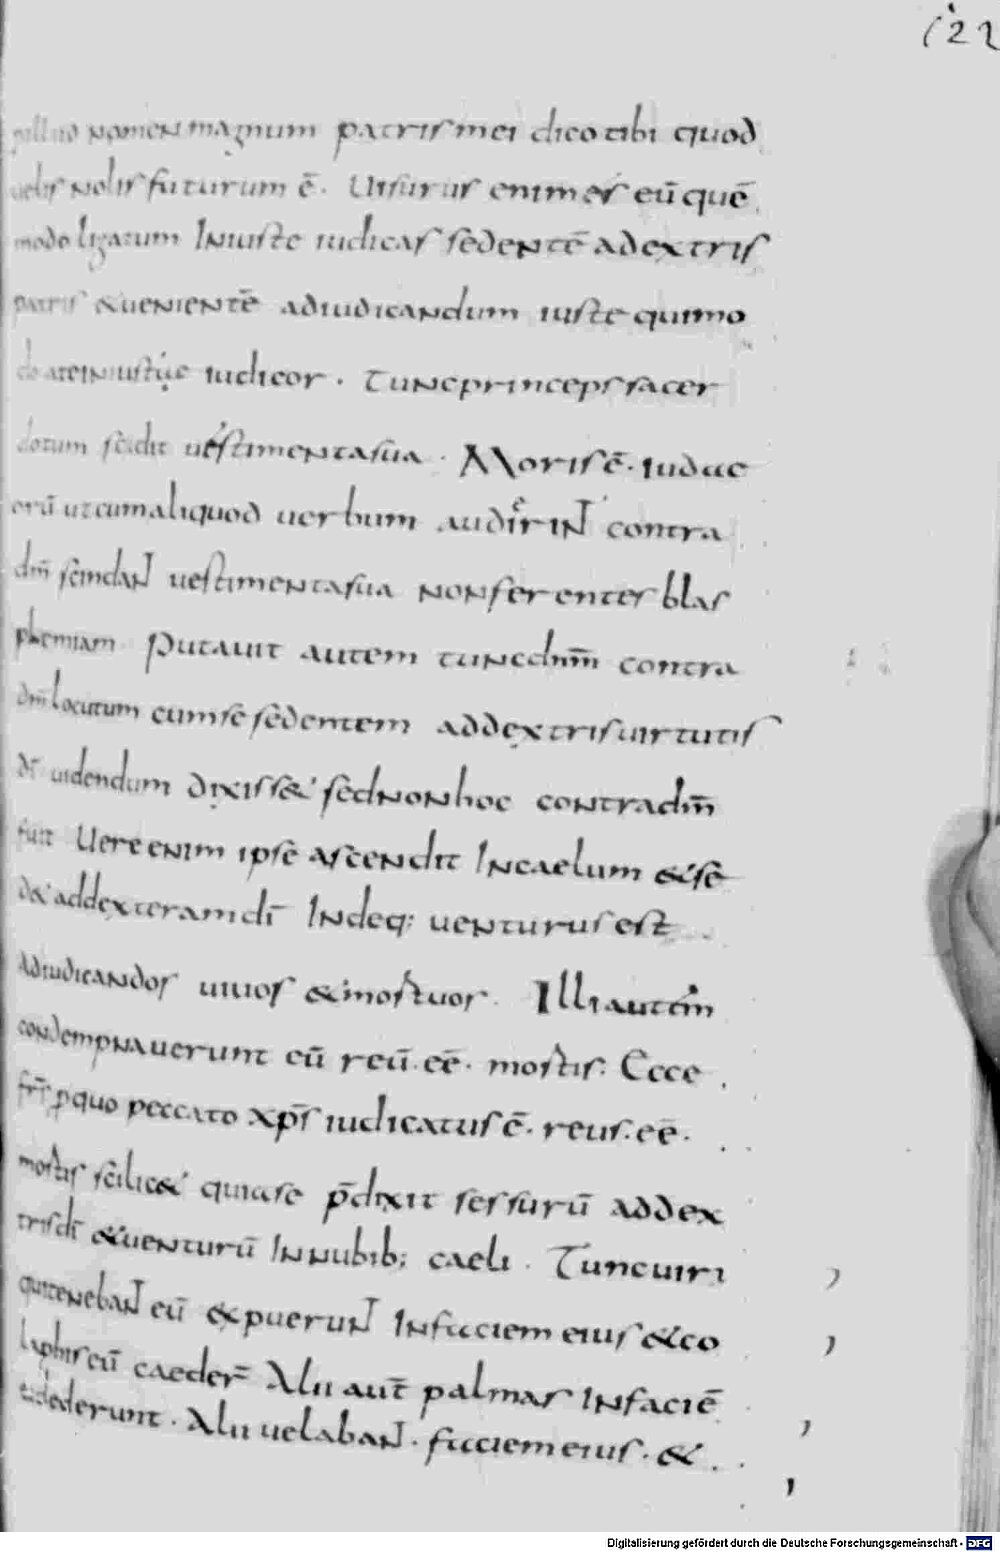 122
nomen magnum patris mei dico tibi quod
uelis nolis futurum ē. Uisurus enim es eū quē
modo ligatum Iniuste iudicas sedentē adextris
patris & uenientē adiudicandum iuste qui mo
iudicor. Tunc princeps sacer
dotum scidit uestimenta sua. Moris ē. iudae
orū ut cum aliquod uerbum audier in contra
dm̄ scindant uestimenta sua non ferentes blas
phemiam. Putauit autem tunc dnm̄ contra
dm̄ locutum cum se sedentem addextris uirtutis
dī uidendum dixiss& sed non hoc contra dm̄
fuit Uere enim ipse ascendit In caelum & se
d& addexteram dī Indeq; uenturus est
Adiudicandos uiuos & mortuos. Illi autem
condempnauerunt eū reū. eē. mortis: Ecce
frs̄ p quo peccato xp̄s iudicatus ē. reus. eē.
mortis scilic& quia se p̄dixit sessurū addex
tris dī & uenturū In nubib; caeli. Tunc uiri
qui tenebant eū expuerunt In faciem eius & co
laphis eū caeder̄ Alii aut̄ palmas In faciē
ei dederunt. Alii uelabant. faciem eius. &
Digitalisierung gefördert durch die Deutsche Forschungsgemeinschaft - DFG